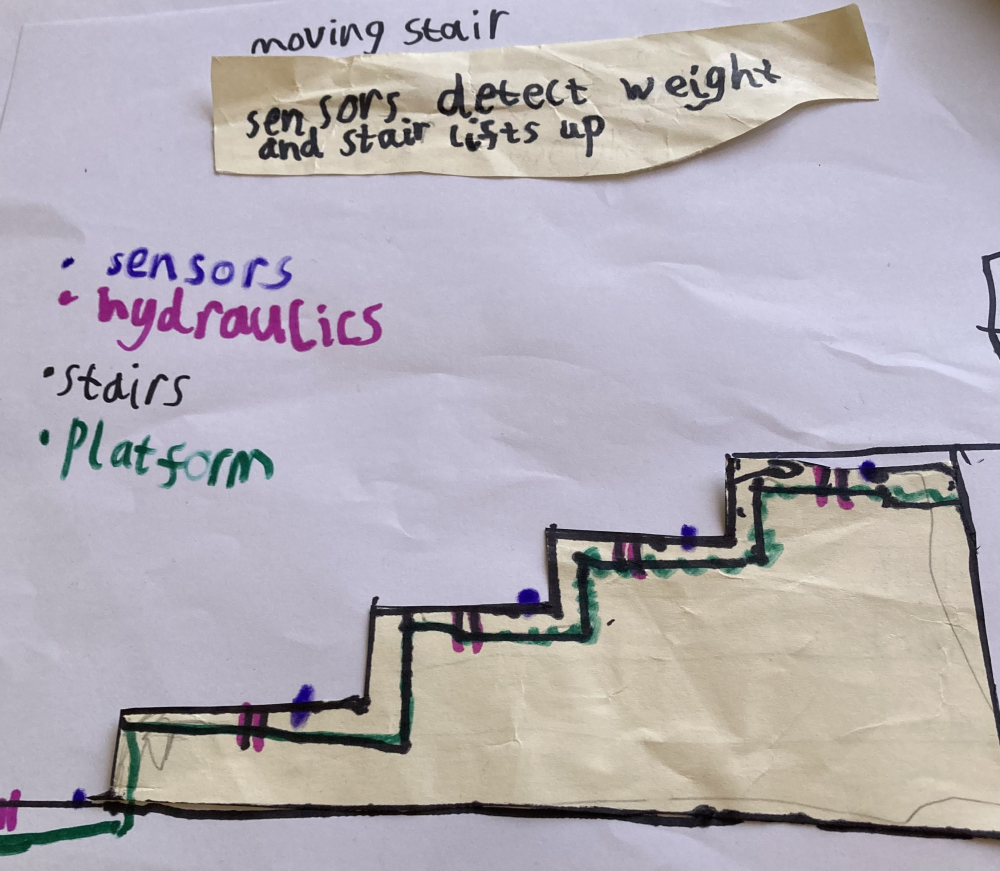 moving stair
sensors detect weight
and stair lifts up
• sensors
• hydraulics
• stairs
• Platform